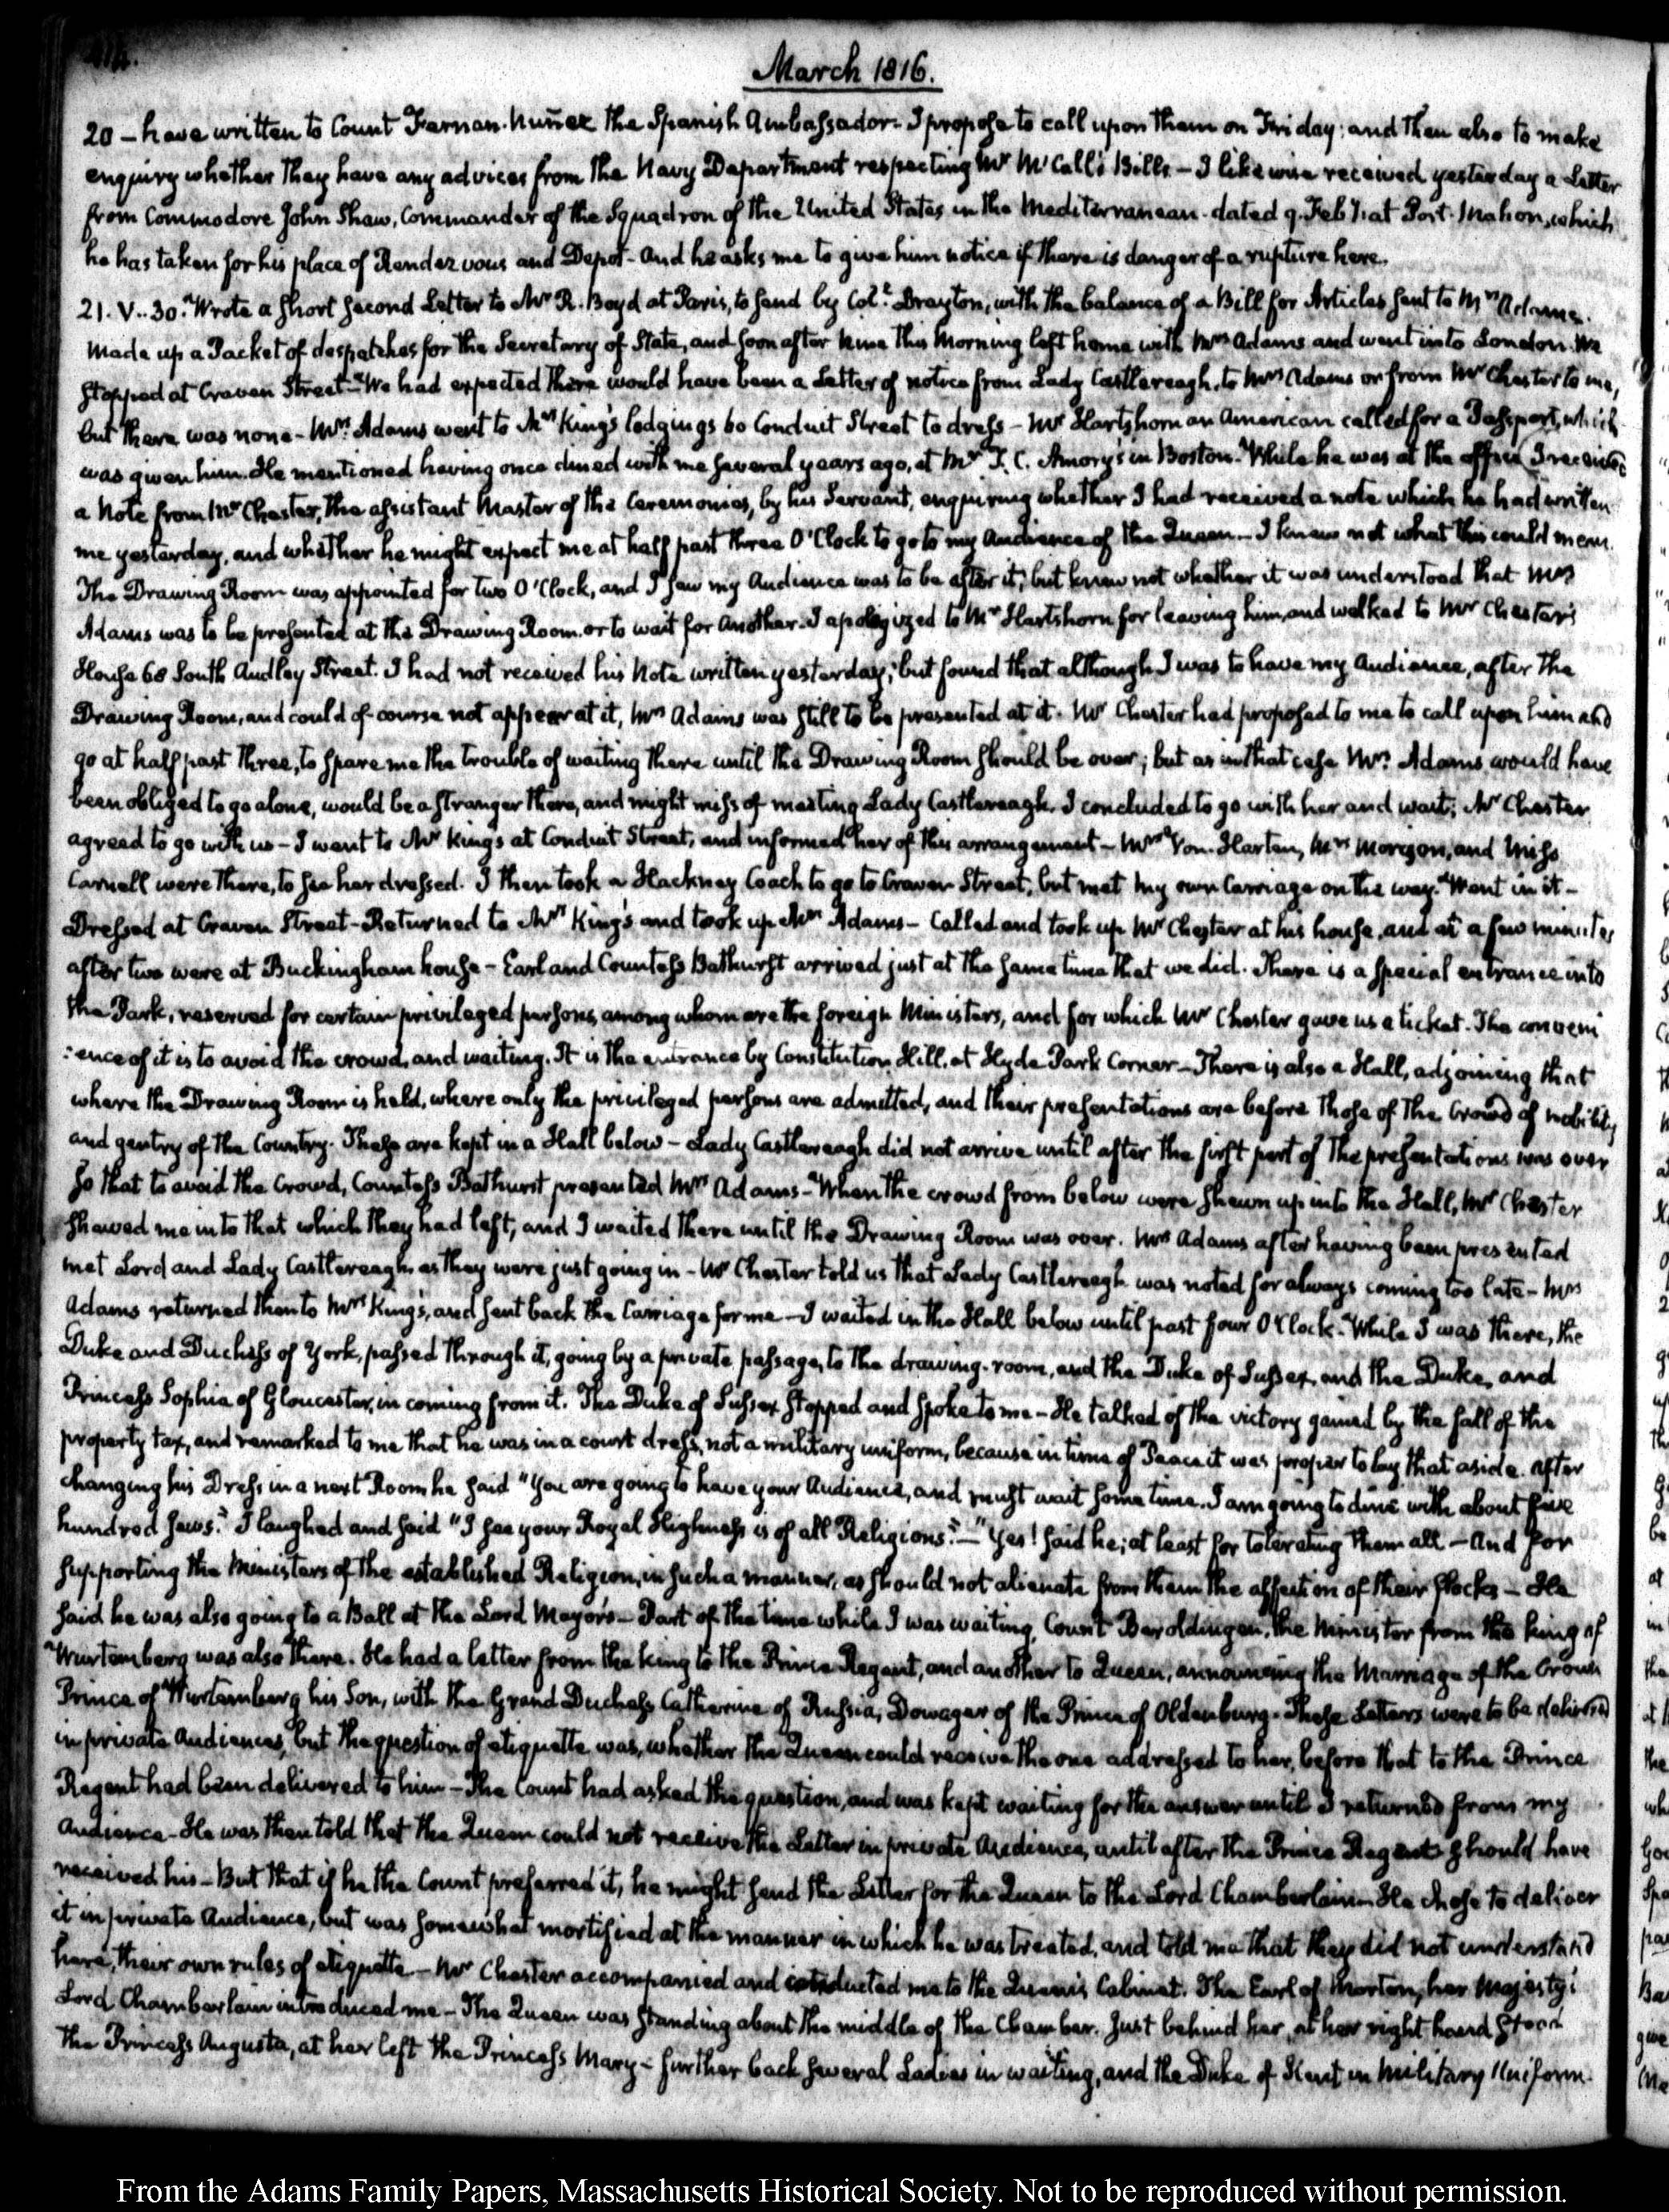 March 1816.
20 – have written to Count Fernan-Nuñez the Spanish Ambassador – I propose to call upon them on Friday; and then also to make
enquiry whether they have any advices from the Navy Department respecting Mr McCall's Bills – I likewise received yesterday a Letter
from Commodore John Shaw, Commander of the Squadron of the United States in the Mediterranean – dated 9. Feby. at Port-Mahon, which
he has taken for his place of Rendezvous and Depot – And he asks me to give him notice if there is danger of a rupture here.
21. V..30. Wrote a short second Letter to Mr R. Boyd at Paris, to send by Coll. Drayton, with the balance of a Bill for Articles sent to Mrs Adams.
Made up a Packet of despatches for the Secretary of State, and soon after nine this Morning left home with Mrs Adams and went into London. We
stopped at Craven Street – We had expected there would have been a Letter of notice from Lady Castlereagh, to Mrs Adams or from Mr Chester to me,
but there was none – Mrs Adams went to Mrs King's lodgings 60 Conduit Street to dress – Mr Hartshorn an American called for a Passport, which
was given him. He mentioned having once dined with me several years ago, at Mr T. C. Amory's in Boston. While he was at the office I received
a Note from Mr Chester, the assistant Master of the Ceremonies, by his Servant, enquiring whether I had received a note which he had written
me yesterday, and whether he might expect me at half past three O'Clock to go to my Audience of the Queen – I knew not what this could mean.
The Drawing Room was appointed for two O'Clock, and I saw my Audience was to be after it; but knew not whether it was understood that Mrs
Adams was to be presented at this Drawing Room or to wait for another. I apologized to Mr Hartshorn for leaving him, and walked to Mr Chester's
House 68 South Audley Street. I had not received his Note written yesterday; but found that although I was to have my Audience, after the
Drawing Room, and could of course not appear at it, Mrs Adams was still to be presented at it. Mr Chester had proposed to me to call upon him and
go at half past three, to spare me the trouble of waiting there until the Drawing Room should be over; but as in that case Mrs Adams would have
been obliged to go alone, would be a stranger there, and might miss of meeting Lady Castlereagh, I concluded to go with her and wait; Mr Chester
agreed to go with us – I went to Mrs King's at Conduit Street, and informed her of this arrangement – Mrs Von-Harten, Mrs Morison, and Miss
Carnell were there, to see her dressed. I then took a Hackney Coach to go to Craven Street, but met my own Carriage on the way. Went in it –
Dressed at Craven Street – Returned to Mrs King's and took up Mrs Adams – Called and took up Mr Chester at his house, and at a few minutes
after two were at Buckingham house – Earl and Countess Bathurst arrived just at the same time that we did. There is a special entrance into
the Park, reserved for certain privileged persons, among whom are the foreign Ministers, and for which Mr Chester gave us a ticket. The conveni
:ence of it is to avoid the crowd, and waiting. It is the entrance by Constitution Hill, at Hyde Park Corner – There is also a Hall, adjoining that
where the Drawing Room is held, where only the privileged persons are admitted, and their presentations are before those of the Crowd of nobility
and gentry of the Country. These are kept in a Hall below – Lady Castlereagh did not arrive until after the first part of the presentations was over
so that to avoid the Crowd, Countess Bathurst presented Mrs Adams – When the crowd from below were shewn up into the Hall, Mr Chester
shewed me into that which they had left, and I waited there until the Drawing Room was over. Mrs Adams after having been presented
met Lord and Lady Castlereagh as they were just going in – Mr Chester told us that Lady Castlereagh was noted for always coming too late – Mrs
Adams returned then to Mrs King's, and sent back the Carriage for me – I waited in the Hall below until past four O'Clock. While I was there, the
Duke and Duchess of York, passed through it, going by a private passage, to the drawing-room, and the Duke of Sussex, and the Duke, and
Princess Sophia of Gloucester, in coming from it. The Duke of Sussex stopped and spoke to me – He talked of the victory gained by the fall of the
property tax, and remarked to me that he was in a court dress, not a military uniform, because in time of Peace it was proper to lay that aside. After
changing his Dress in a next Room he said "You are going to have your Audience, and must wait some time. I am going to dine with about five
hundred Jews." I laughed and said "I see your Royal Highness is of all Religions." – "Yes! said he; at least for tolerating them all – And for
supporting the Ministers of the established Religion, in such a manner, as should not alienate from them the affection of their flocks – He
said he was also going to a Ball at the Lord Mayor's – Part of the time while I was waiting, Count Beroldingen, the Minister from the king of
Wurtemberg was also there. He had a letter from the king to the Prince Regent, and another to Queen, announcing the Marriage of the Crown
Prince of Wurtemberg his Son, with the Grand Duchess Catherine of Russia, Dowager of the Prince of Oldenburg – These Letters were to be delivered
in private Audiences, but the question of etiquette was, whether the Queen could receive the one addressed to her, before that to the Prince
Regent had been delivered to him – The Count had asked the question, and was kept waiting for the answer until I returned from my
Audience – He was then told that the Queen could not receive the Letter in private Audience, until after the Prince Regent should have
received his – But that if he the Count preferred it, he might send the Letter for the Queen to the Lord Chamberlain – He chose to deliver
it in private Audience, but was somewhat mortified at the manner in which he was treated, and told me that they did not understand
here, their own rules of etiquette – Mr Chester accompanied and conducted me to the Queen's Cabinet. The Earl of Morton, her Majesty's
Lord Chamberlain introduced me – The Queen was standing about the middle of the Chamber. Just behind her, at her right hand stood
the Princess Augusta, at her left the Princess Mary – further back several Ladies in waiting, and the Duke of Kent in Military Uniform.
From the Adams Family Papers, Massachusetts Historical Society. Not to be reproduced without permission.